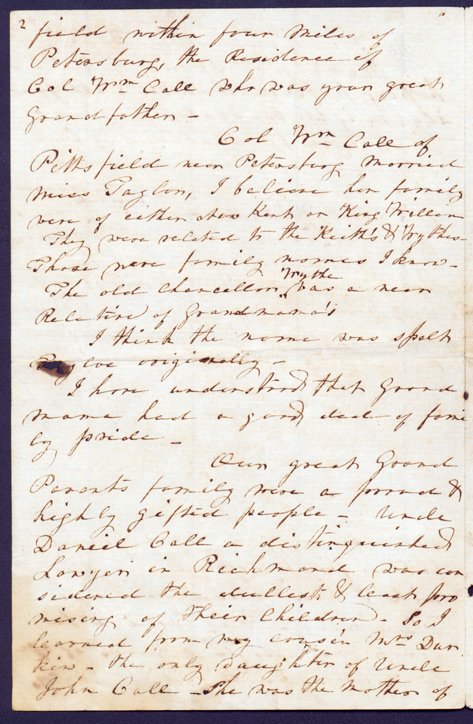 2
field within four miles of
Petersburg, the Residence of
Col Wm Call who was your great
Grandfather -
Col Wm Call of
Pittsfield near Petersburg Married
Miss Taylor, I believe her family
were of either New Kent or King William
They were related to the Keith's & Wythes
Those were family names I know -
Wythe
The old Chancellor was a near
Relative of Grandmama's
I think the name was spelt
originally -
I have understood that Grand
mama had a good deal of fami
ly pride -
Our great Grand
Parents family were a proud &
highly gifted people - Uncle
Daniel Call a distinguished
Lawyer in Richmond was con
sidered the dullest & least pro
mising of their Children - So I
learned from my cousin Mrs Dur
kin - the only daughter of Uncle
John Call - She was the Mother of